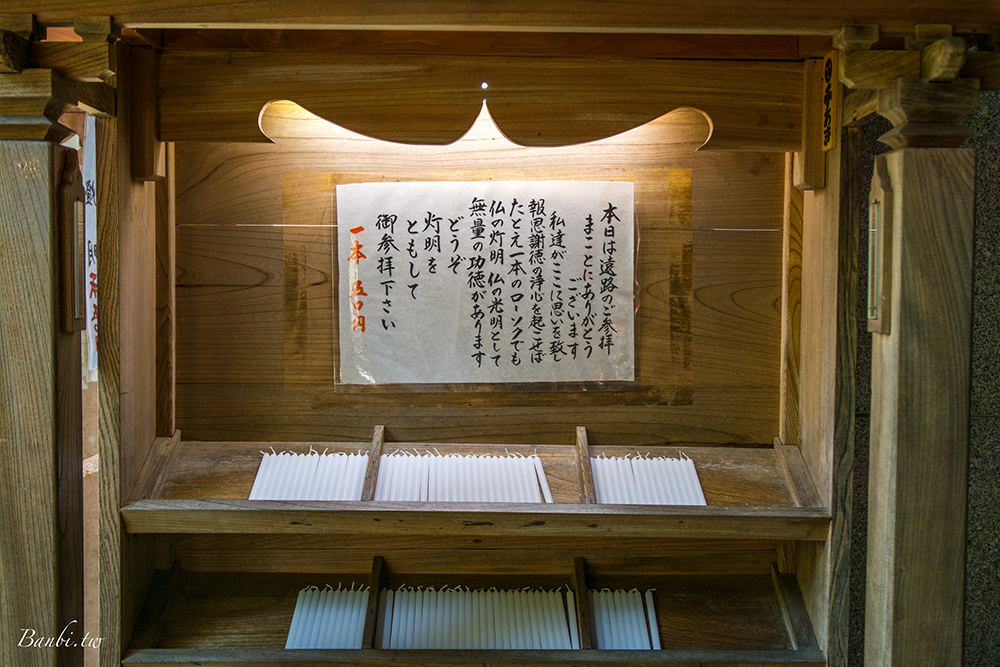 本日は遠路のご参拝
まことにありがとう
ございます
私達がここに思いを致し
報恩謝徳の浄心を起こせば
たとえ一本のローソクでも
仏の灯明 仏の光明として
無量の功徳があります
どうぞ
灯明を
ともして
御参拝下さい
一本 五〇円
Banbi.tw